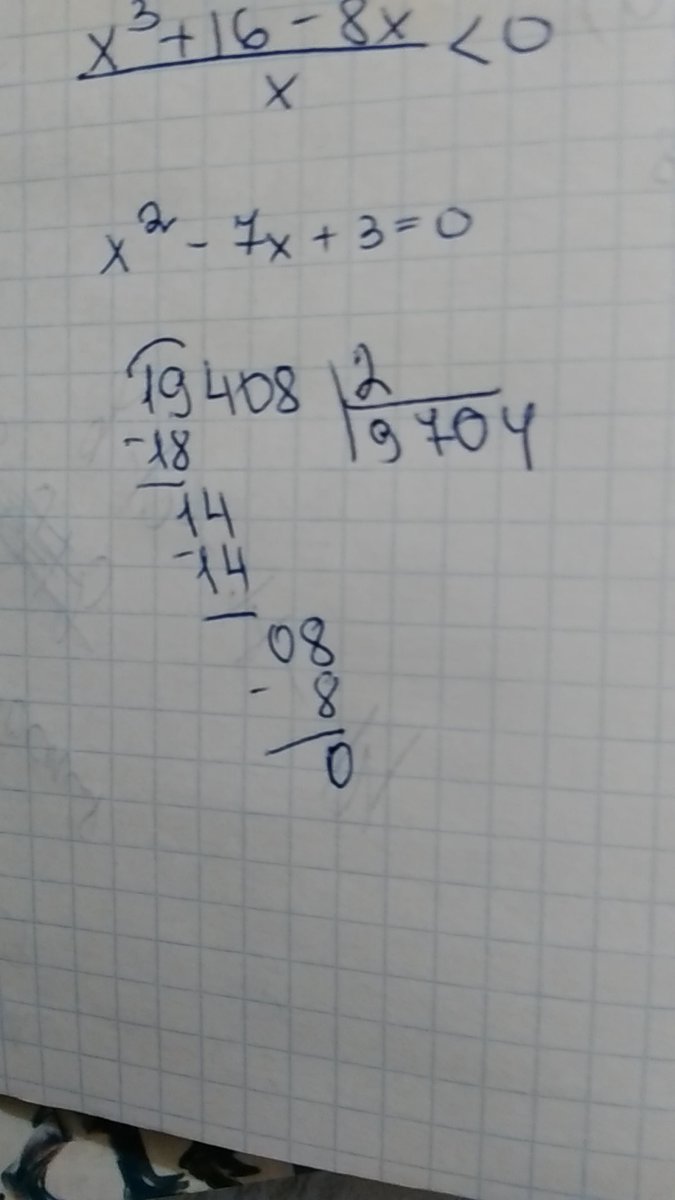 x³+16-8x
x
<0
x²-7x+3=0
19408 | 2
-18 | 9704
14
-14
08
- 8
0